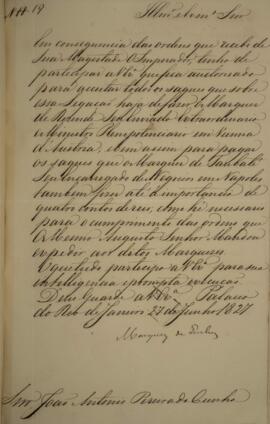 N.º 19
Illm.º e Exm.º Snr
Em consequencia das ordens que recebi de
Sua Magestade o Imperador, tenho de
participar a V Ex.ª que fica authorisado
para aceitar todos os saques que sobre
essa Legação haja de fazer o Marquez
de Rezende Seo Enviado Extraordinario
e Ministro Plenipotenciario em Vienna
d'Austria e bem assim para pagar
os saques que o Marquez de
Seu encarregado de Negocios em Napoles
tambem fizer até a importancia de
quatro contos de reis, como he necessario
para o cumprimento das ordens que
O Mesmo Augusto Senhor Mandou
expedir aos ditos Marquezes.
O que tudo participo a V Ex.ª para sua
intelligencia e prompta execução
Deus Guarde a V Ex.ª Palacio
do Rio de Janeiro 27 de Junho 1827
Marquez de Queluz
Snr João Antonio Pereira da Cunha